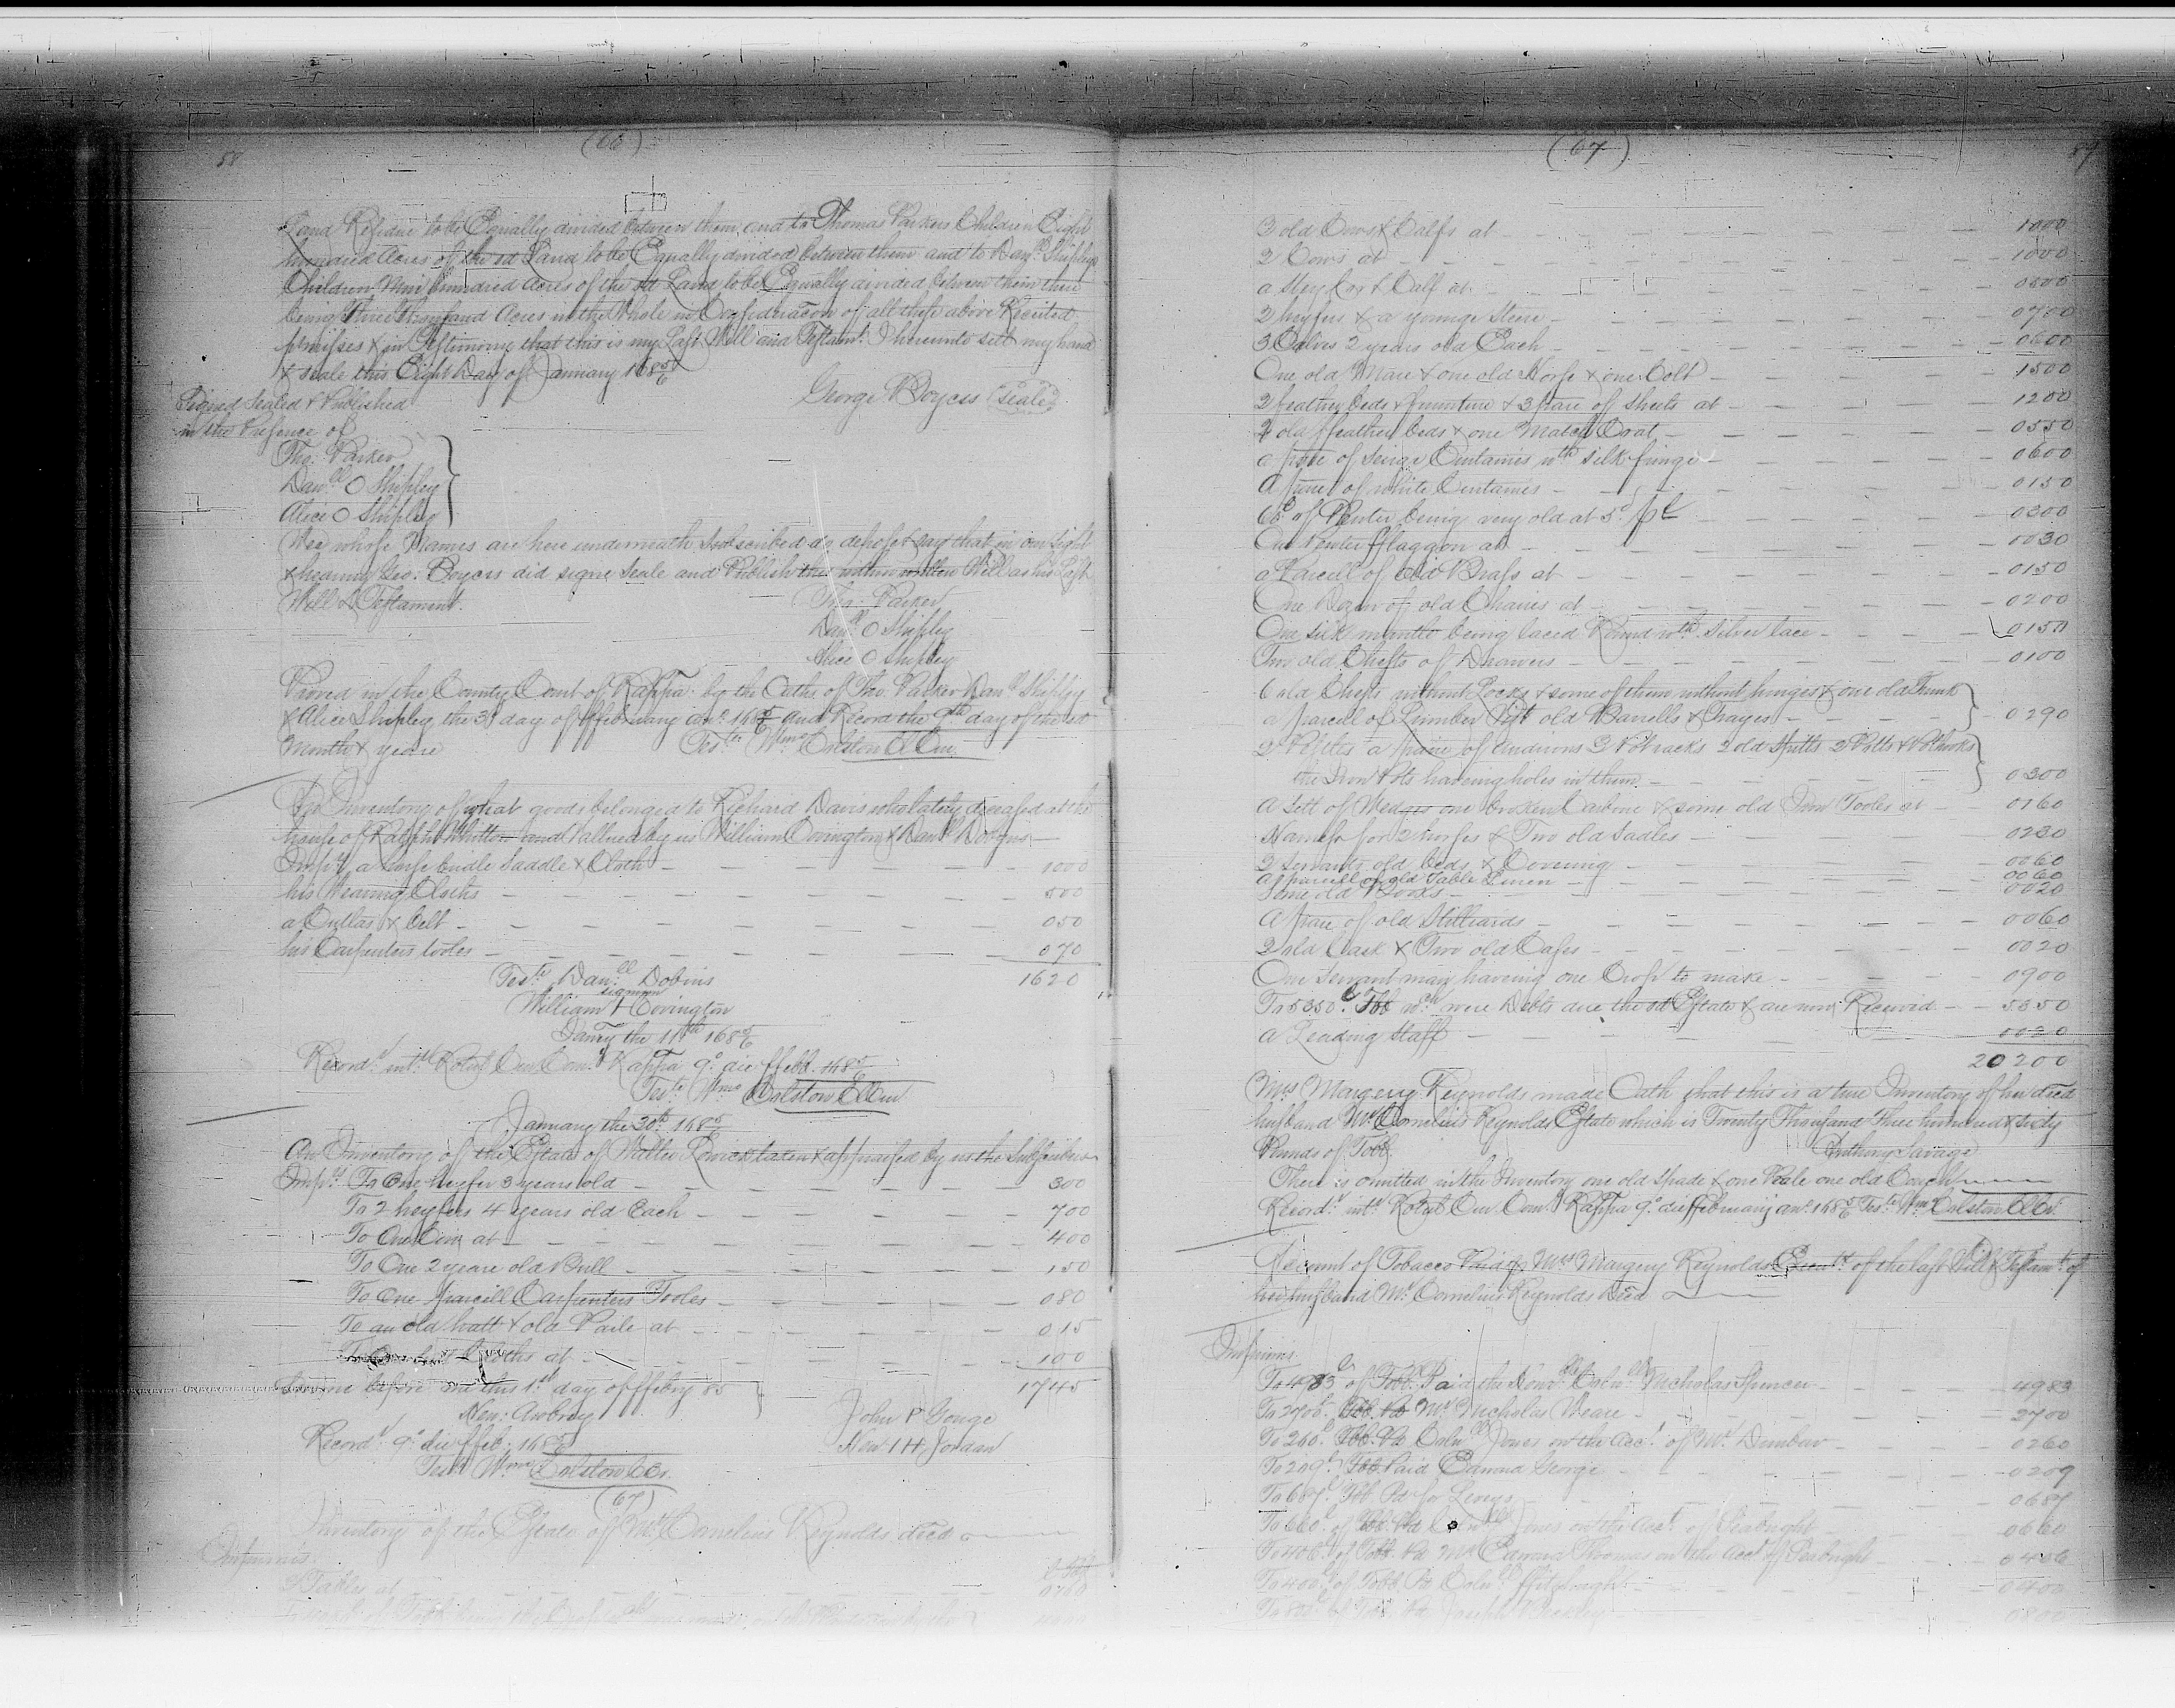 58
(66)
Land Residue to be Equally divided between them and to Thomas Parkers Children Eight
hundred Acres of the sd Land to be Equally divided between them and to Danll Shipleys
Children Nine hundred Acres of the sd Land to be Equally divided between them there
being Three Thousand Acres in the Whole in Consideracon of all these above Recited
premisses & in Testimony that this is my Last Will and Testamt. I hereunto sett my hand
& seale this Eight Day of January 1685/6
George Boycss (Seale)
Signed Sealed & Published
in the Presence of
Tho: Parker
Danll O Shipley
Alice O Shipley
Wee whose Names are here underneath Subscribed do depose & say that in our Sight
& hearing Geo: Boycss did signe Seale and Publish this within written Will as his Last
Will & Testament.
Tho: Parker
Danll O Shipley
Alice O Shipley
Proved in the County Court of Rappa: by the Oaths of Tho: Parker Danll Shipley
& Alice Shipley the 3d day of ffebruary ano. 1685/6 and Record the 9th day of the sd
Month & yeare
Teste Wmo Colston Cl Cur.
An Inventory of what goods belonged to Richard Davis who lately deceased at the
house of Ralph Whitton and Vallued by us William Covington & Danll Dobyns
Impr a horse bridle Saddle & Cloth 1000
his Wearing Cloths 500
a Cutlas & belt 050
his Carpenters tooles 070
1620
Teste Danll Dobins
signum
William + Covington
Janry the 11th 1685/6
Recordr. intr Rotul Cur Comr Rappa 9o die ffebr. 1685/6
Teste Wmo Colston Cl Cur
January the 30th 1685/6
An Inventory of the Estate of Walter taken & appraised by us the Subscribers
Impr To One heyfer 3 years old 300
To 2 heyfers 4 years old Each 700
To One Cow at 400
To One 2 yeare old Bull 150
To One parcill Carpenters Tooles 080
To an old hatt & old Paile at 015
Cloths at 100
1745
Sworne before me this 1st day of ffebry 85
Hen: Awbrey
John P Gouge
Hen I H Jordan
Recordr. 9o die ffeb. 1685/6
Teste Wmo Colston Cl Cr.
(67)
Inventory of the Estate of Mr Cornelius Reynolds deced
Imprimis.
Tables at 0260
(67)
89
3 old Cows & Calfs at 1000
2 Cows at 1000
a Cow & Calf at 0500
2 heyfers & a younge Steere 0700
3 Calves 2 years old Each 0600
One old Mare & one old Horse & one Colt 1500
2 feather beds & furniture & 3 paire of sheets at 1200
2 old ffeather beds & one Matag Coat 0550
a paire of Serge Curtaines wth silk fringe 0600
A paire of white Curtaines 0150
of Pewter being very old at 5d p l 0300
One Pewter fflaggon at 0030
a Parcell of Old Brass at 0150
One Dozen of old Chaires at 0200
One silk mantle being laced Round wth silver lace 0150
Two old Chests of Drawers 0100
6 old Chests without Locks & some of them without hinges & one old Trunk
a parcell of Lumber old Barrells & Trayes 0290
a paire of Andirons 3 Potracks 2 old Spitts 2 Potts & Pothooks
the Iron Pots haveing holes in them 0300
A Sett of Wedges one broken Carbine & some old Iron Tooles at 0160
Harness for 2 horses & Two old Sadles 0230
2 Servants old beds & Covering 0060
a parcell of old Table Linen 0060
Some old Books 0020
A paire of old Stilliards 0060
2 old Cask & Two old Cases 0020
One Servant man haveing one Crop to make 0900
To 5350l Tob wch were Debts due the sd Estate & are now Received 5350
a Leading Staff 0020
20200
Mrs Margery Reynolds made Oath that this is a true Inventory of her deced
husband Mr Cornelius Reynolds Estate which is Twenty Thousand Three hundred & sixty
Pounds of Tobb.
Anthony Savage
There is omitted in the Inventory one old Spade & one Peale one old Couch
Recordr. intr Rotul Cur Comr Rappa 9o die ffebruarij ano. 1685/6 Teste Wmo Colston Cl Cr.
Account of Tobacco Paid p Mrs Margery Reynolds Execut of the last Will & Testamt of
her husband Mr Cornelius Reynolds Deced
Imprimis.
To 4983l of Tobb. Paid the Honoble Colonll Nicholas Spencer 4983
To 2700l. Tob. Pd Mr Nicholas Weare 2700
To 260l. Tob. Pd Colnll Jones on the Acct of Mr Dunbar 0260
To 209l Tob Paid Edward George 0209
To 687l. Tob. Pd for Levies 0687
To 660l. of Tob. Pd Colnll Jones on the Acct of Seabright 0660
To 406l of Tobb. Pd Mr Edward Thomas on the Acct of Seabright 0406
To 400l of Tobb. Pd Colnll ffitzhugh 0400
To 800l of Tobb. Pd Joseph 0800